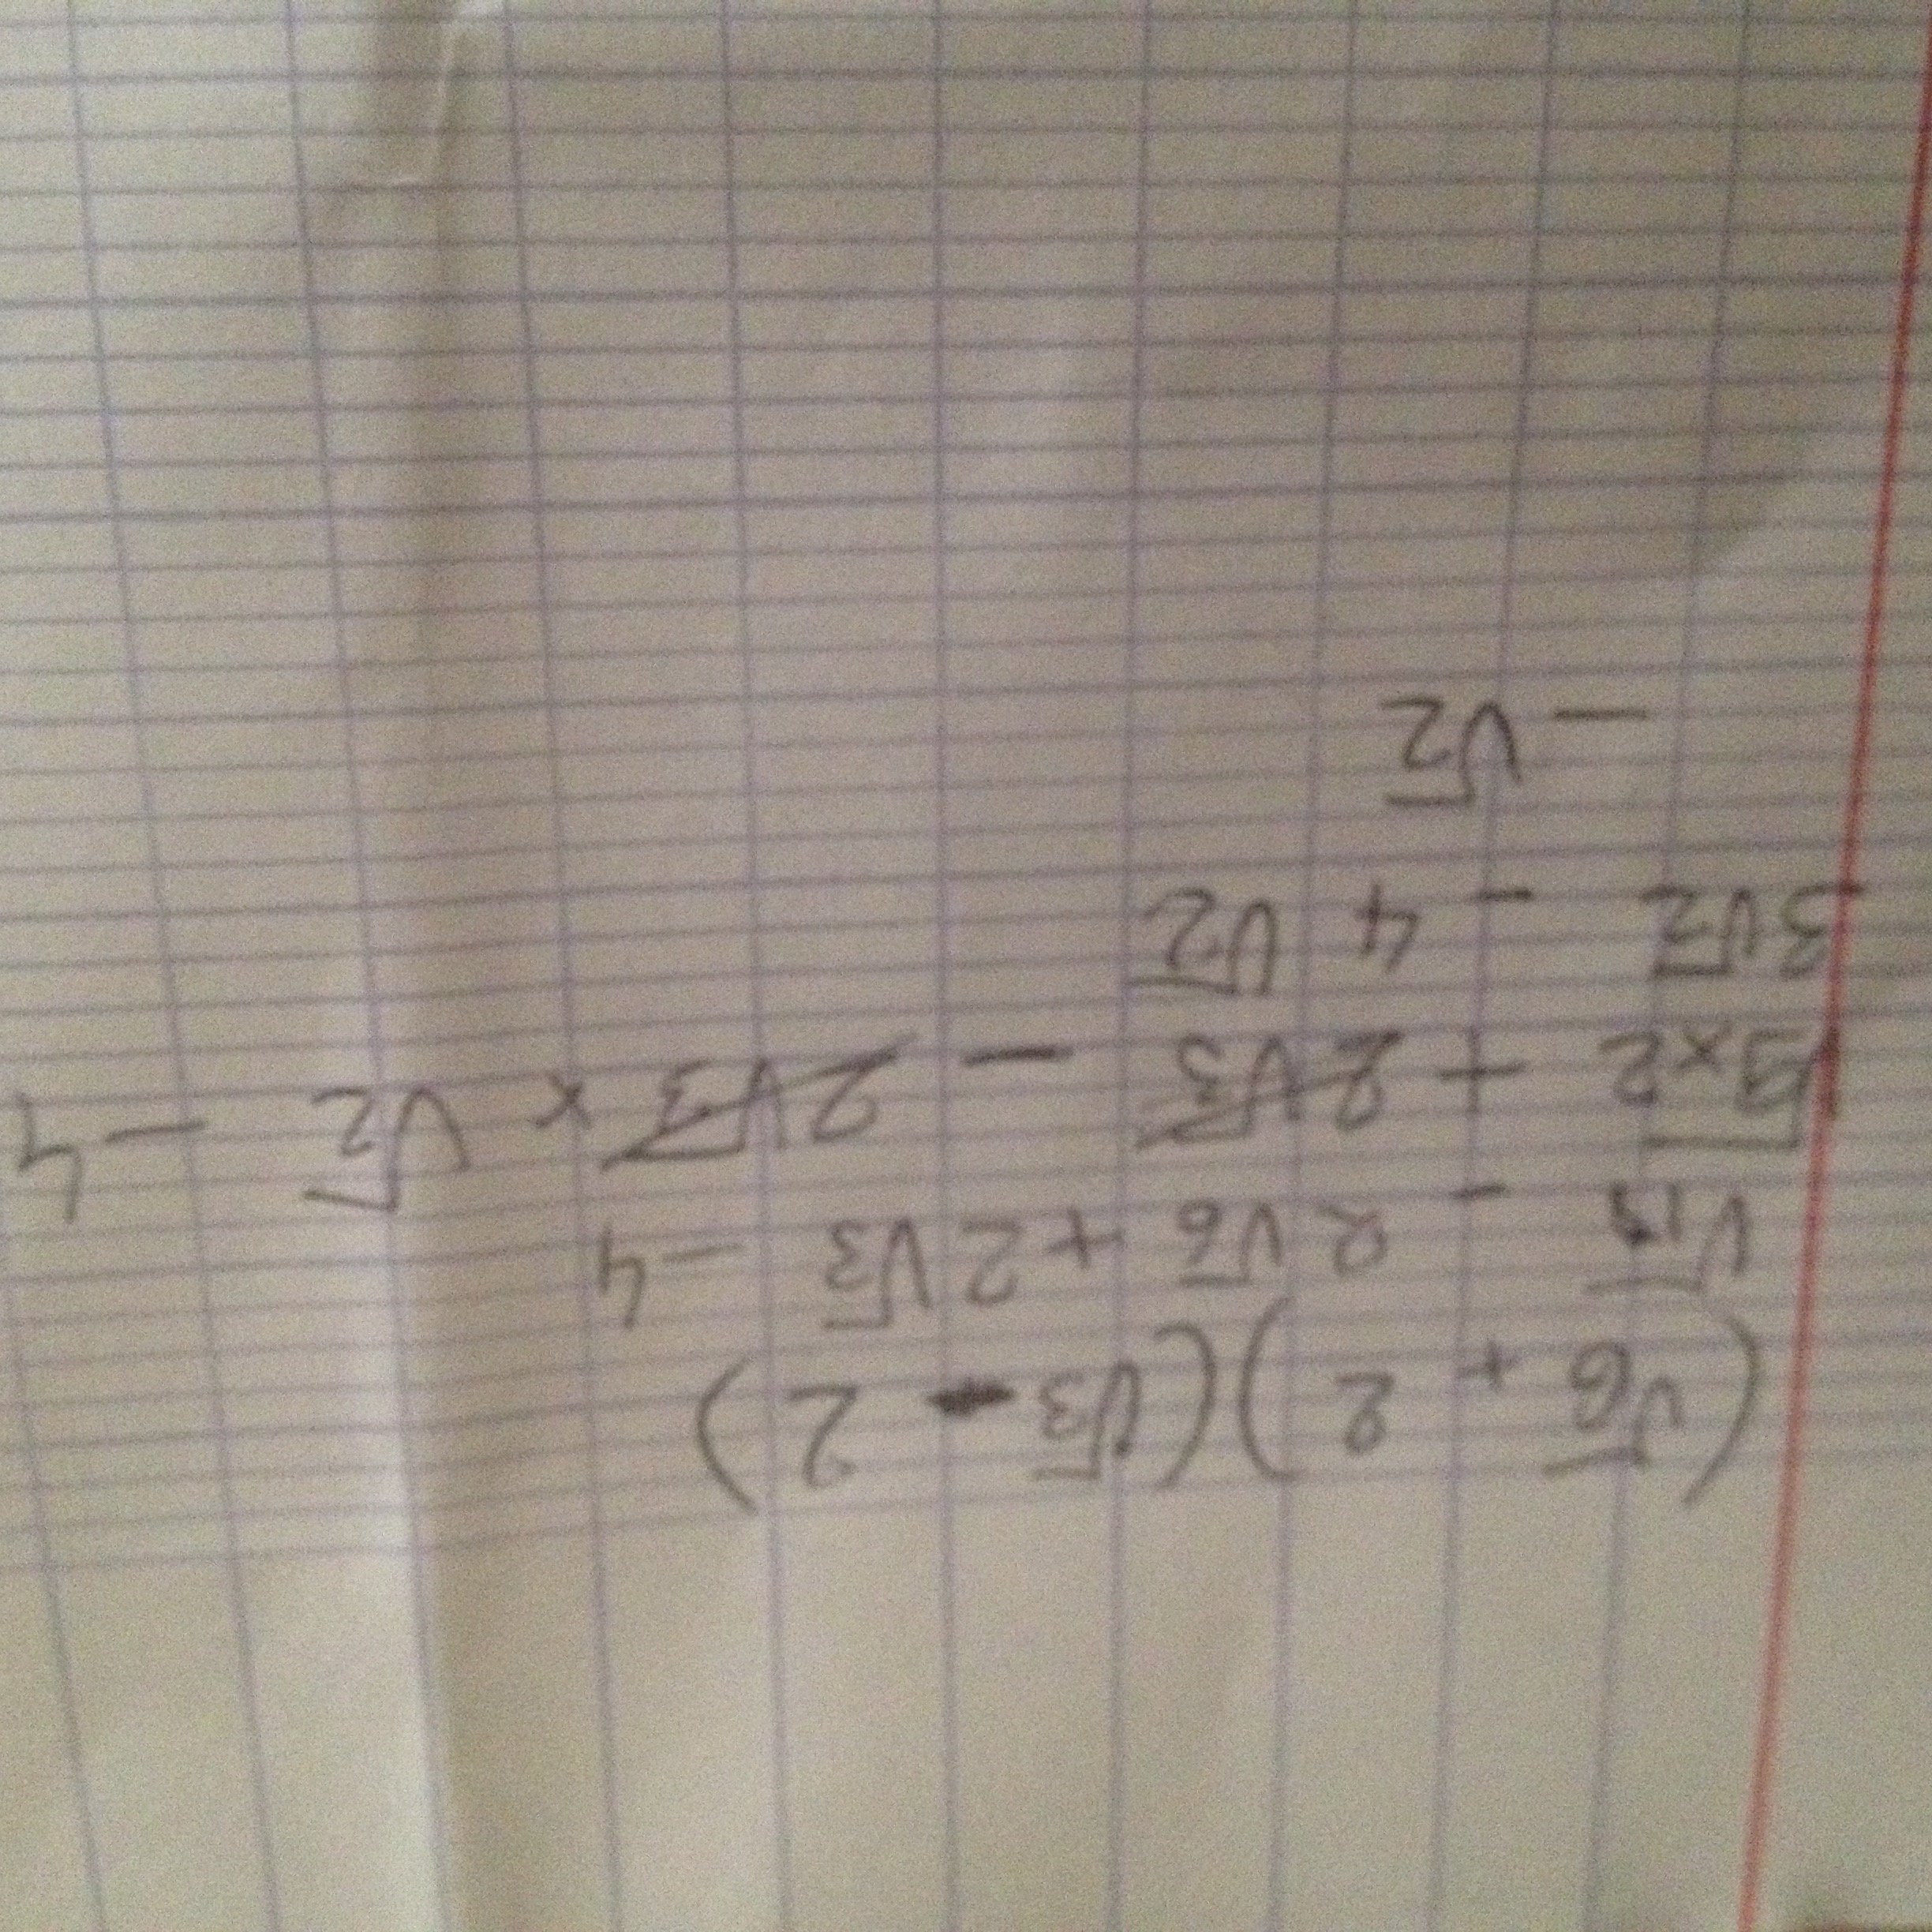 (√6 + 2)(√3 - 2)
√18 - 2√6 + 2√3 - 4
√9×2 + 2√3 - 2√3 × √2 - 4
3√2 - 4 √2
- √2